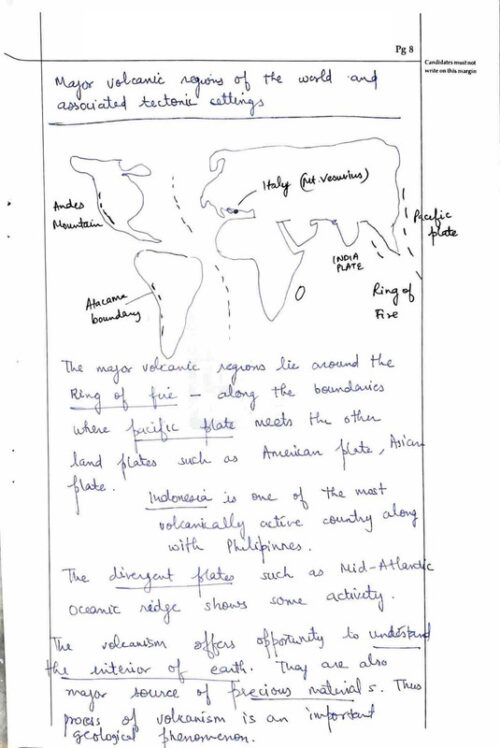 Pg 8
Candidates must not
write on this margin
Major volcanic regions of the world and
associated tectonic settings
Italy (Mt. Vesuvius)
Andes
Mountain
Pacific
plate
INDIA
PLATE
Atacama
boundary
Ring of
Fire
The major volcanic regions lie around the
Ring of fire – along the boundaries
where pacific plate meets the other
land plates such as American plate, Asian
plate.
Indonesia is one of the most
volcanically active country along
with Philipinnes.
The divergent plates such as Mid-Atlantic
oceanic ridge shows some activity.
The volcanism offers opportunity to undestand
the interior of earth. They are also
major source of precious materials. Thus
process of volcanism is an important
geological phenomenon.